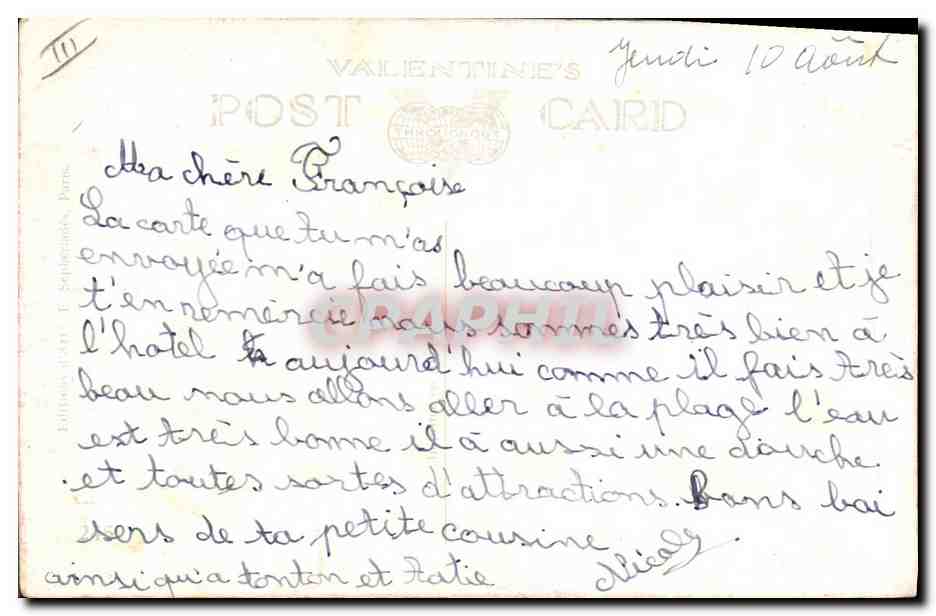 III
Jeudi 10 Août
VALENTINE'S
POST CARD
THROUGHOUT
Ma chère Françoise
La carte que tu m'as
envoyée m'a fais beaucoup plaisir et je
t'en remércie nous sommes très bien à
l'hotel aujourd'hui comme il fais très
beau nous allons aller à la plage l'eau
est très bonne il à aussi une douche
et toutes sortes d'attractions. Bons bai
sers de ta petite cousine
Nicole
ainsi qu'a tonton et tatie
CPAPHIL